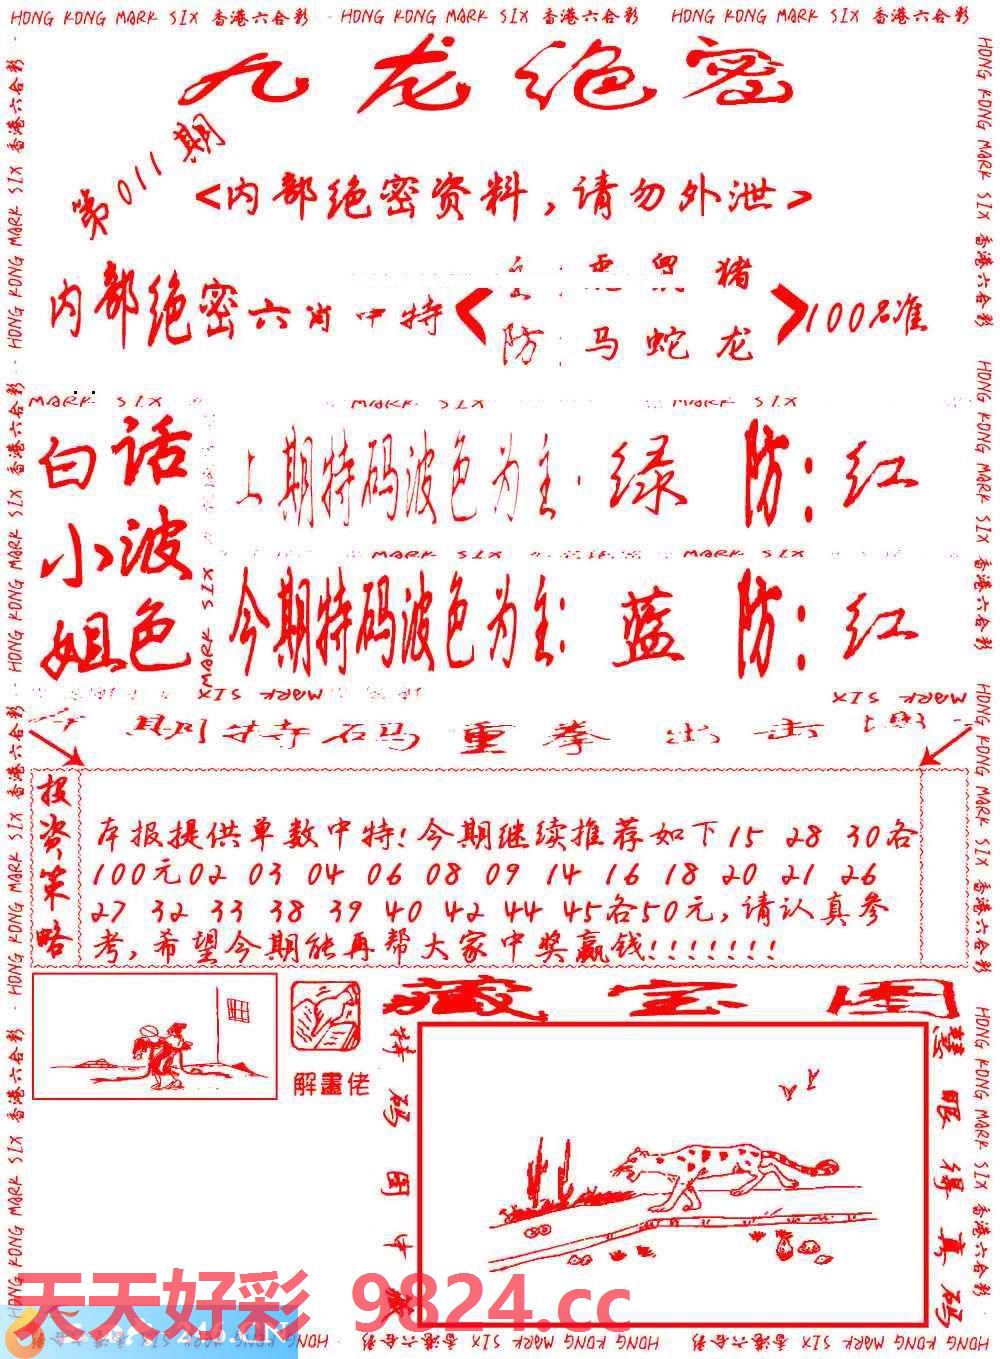 HONG KONG MARK SIX 香港六合彩 HONG KONG MARK SIX 香港六合彩 HONG KONG MARK SIX 香港六合彩
九龙绝密
第011期
<内部绝密资料,请勿外泄>
猪
内部绝密六肖中特 < > 100%准
防 马蛇龙
MARK SIX MARK SIX MARK SIX
白话
小波
姐色
上期特码波色为主: 绿 防: 红
MARK SIX MARK SIX
今期特码波色为主: 蓝 防: 红
MARK SIX MARK SIX MARK SIX
期特码重拳出击
投资策略
本报提供单数中特!今期继续推荐如下15 28 30各
100元02 03 04 06 08 09 14 16 18 20 21 26
27 32 33 38 39 40 42 44 45各50元,请认真参
考,希望今期能再帮大家中奖赢钱!!!!!!!
藏宝图
解畫佬
特码图中
慧眼得真码
天天好彩 9824.cc
HONG KONG MARK SIX 香港六合彩 HONG KONG MARK SIX 香港六合彩